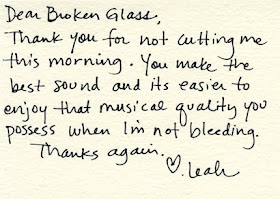 Dear Broken Glass,
Thank you for not cutting me
this morning. You make the
best sound and its easier to
enjoy that musical quality you
possess when I'm not bleeding.
Thanks again.
♡. Leah